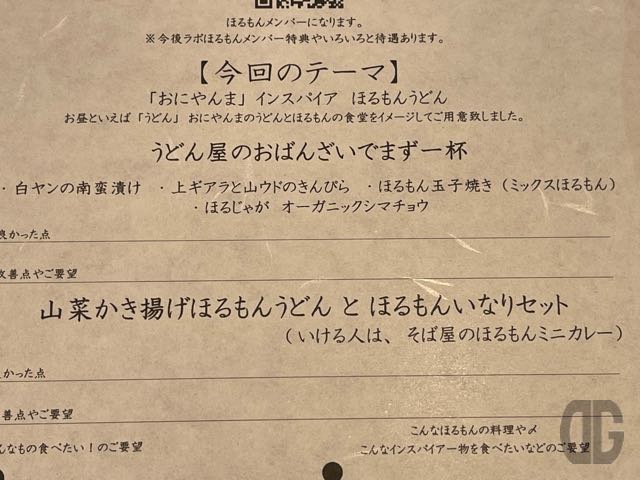 ほるもんメンバーになります。
※今後ラボほるもんメンバー特典やいろいろと待遇あります。
【今回のテーマ】
「おにやんま」インスパイア ほるもんうどん
お昼といえば「うどん」 おにやんまのうどんとほるもんの食堂をイメージしてご用意致しました。
うどん屋のおばんざいでまず一杯
・白ヤンの南蛮漬け ・上ギアラと山ウドのきんぴら ・ほるもん玉子焼き（ミックスほるもん）
・ほるじゃが オーガニックシマチョウ
良かった点
改善点やご要望
山菜かき揚げほるもんうどん と ほるもんいなりセット
（いける人は、そば屋のほるもんミニカレー）
かった点
善点やご要望
こんなほるもんの料理や〆
んなもの食べたい！のご要望
こんなインスパイアー物を食べたいなどのご要望
DG